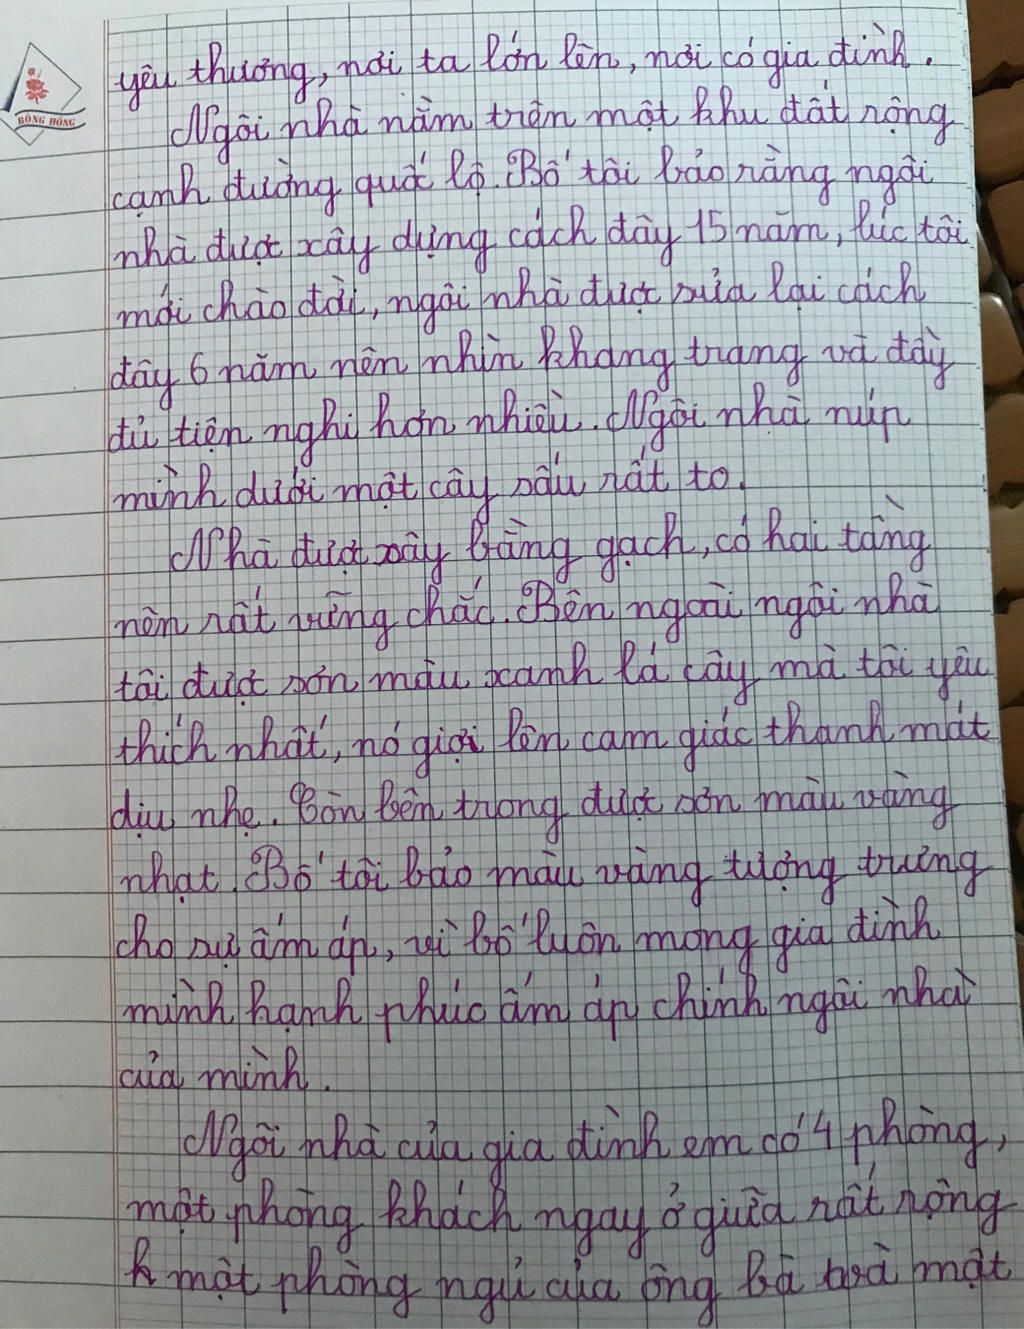 BÔNG HỒNG
yêu thương, nơi ta lớn lên, nơi có gia đình.
Ngôi nhà nằm trên một khu đất rộng
cạnh đường quốc lộ. Bố tôi bảo rằng ngôi
nhà được xây dựng cách đây 15 năm, lúc tôi
mới chào đời, ngôi nhà được sửa lại cách
đây 6 năm nên nhìn khang trang và đầy
đủ tiện nghi hơn nhiều. Ngôi nhà núp
mình dưới một cây sấu rất to.
Nhà được xây bằng gạch, có hai tầng
nên rất vững chắc. Bên ngoài ngôi nhà
tôi được sơn màu xanh lá cây mà tôi yêu
thích nhất, nó gợi lên cam giác thanh mát
dịu nhẹ. Còn bên trong được sơn màu vàng
nhạt. Bố tôi bảo màu vàng tượng trưng
cho sự ấm áp, vì bố luôn mong gia đình
mình hạnh phúc ấm áp chính ngôi nhà
của mình.
Ngôi nhà của gia đình em có 4 phòng,
một phòng khách ngay ở giữa rất rộng
một phòng ngủ của ông bà và một